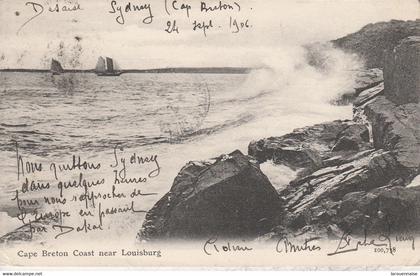 Désaix Sydney (Cap Breton)
24 sept. 1906
Nous quittons Sydney
dans quelques heures
pour nous rapprocher de
l'Europe en passant
par Dakar
Cape Breton Coast near Louisburg
100,738